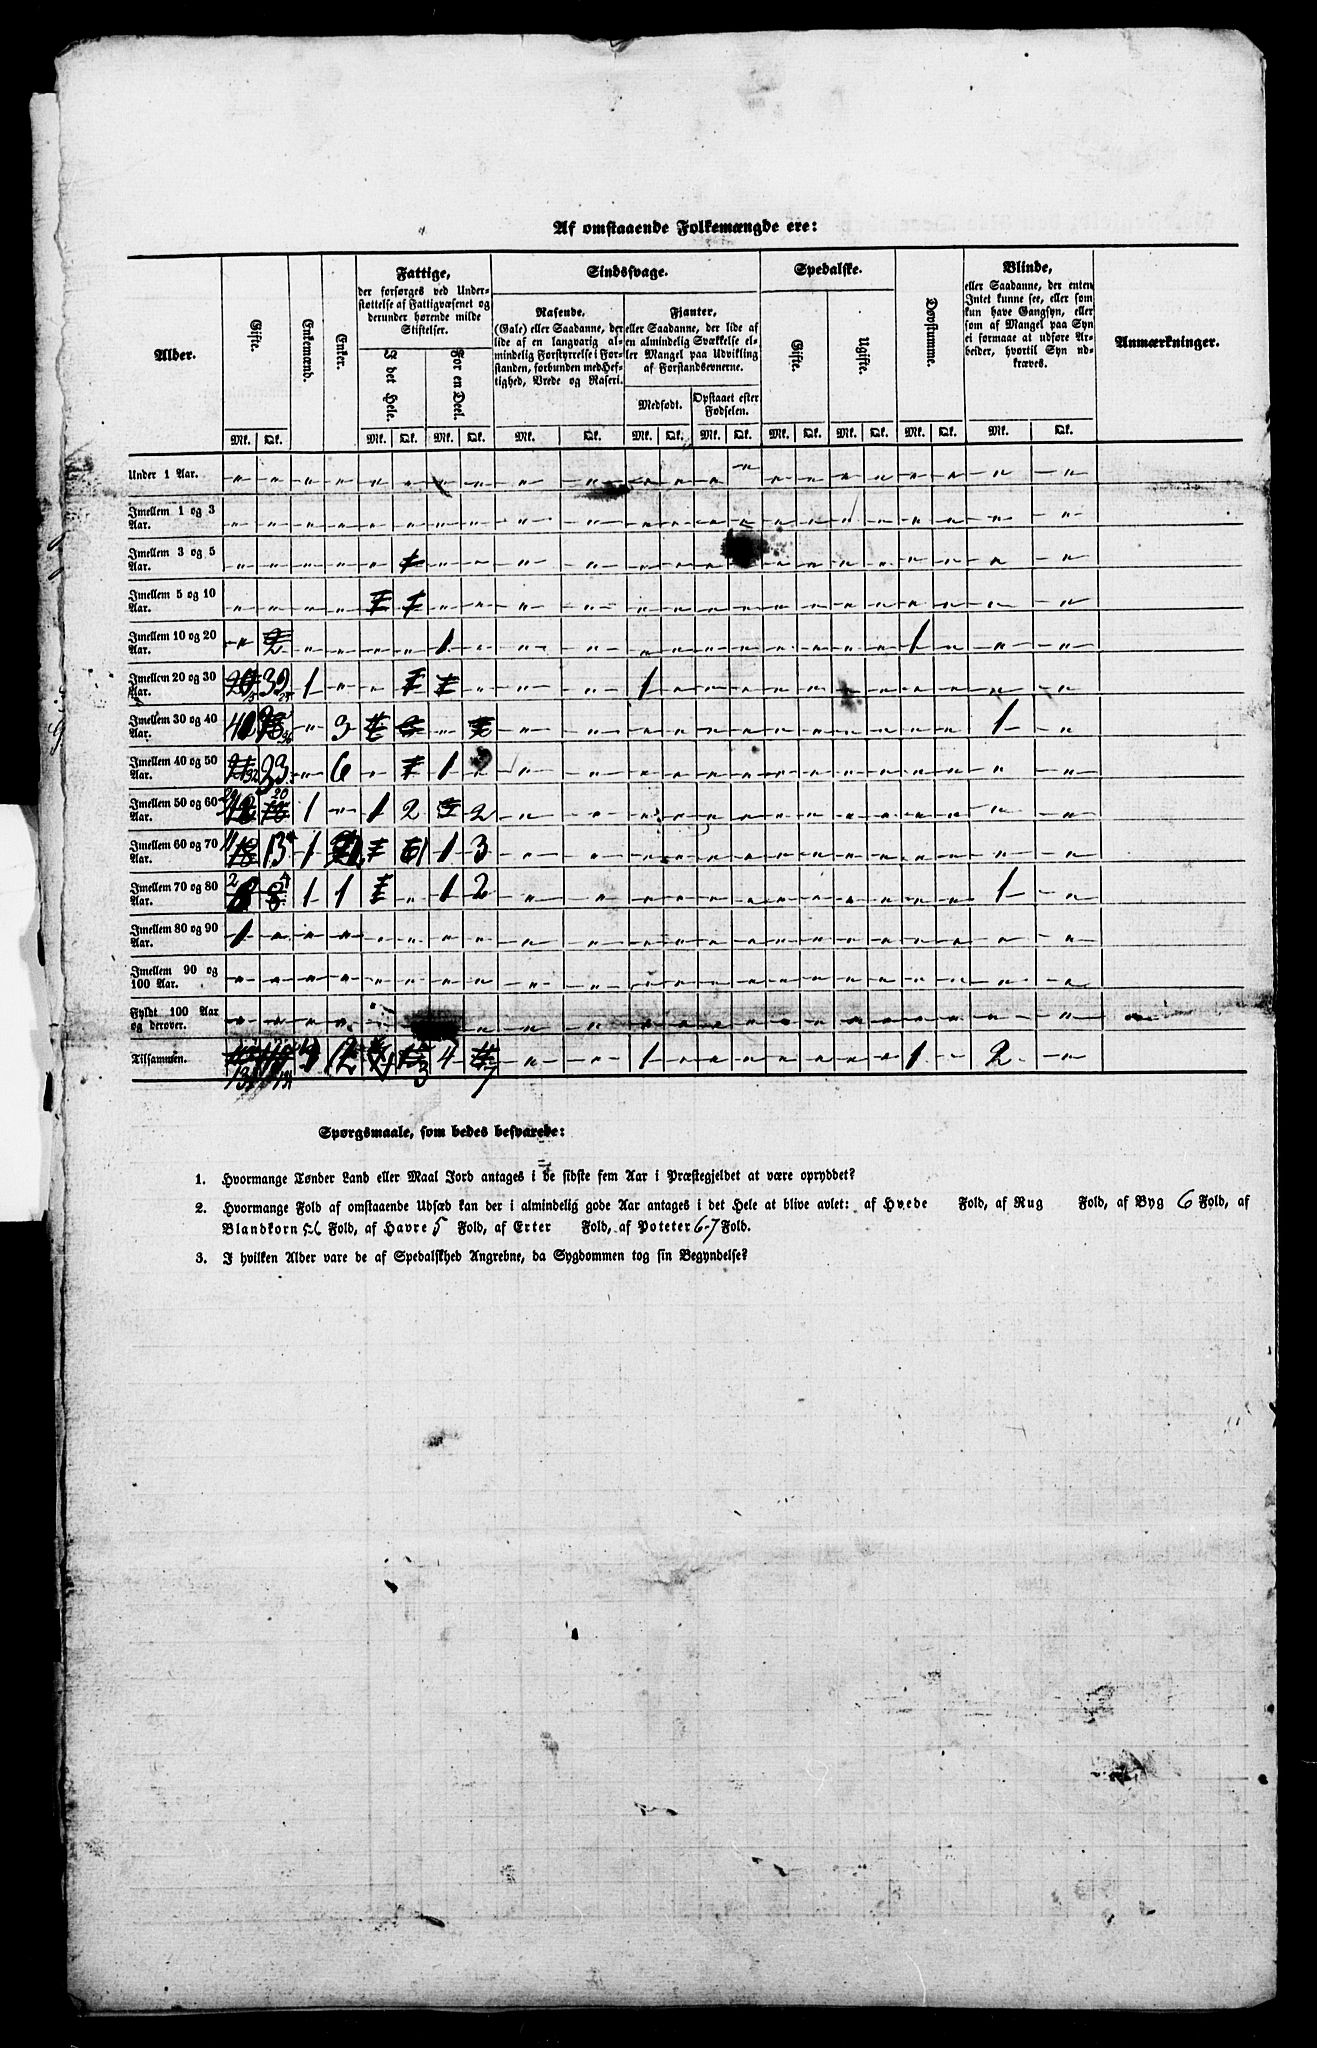 Af omstaaende Folkemængde ere:
Alder.
Gifte.
Enkemænd.
Enker.
Fattige,
der forsørges ved Under-
støttelse af Fattigvæsenet og
derunder hørende milde
Stiftelser.
I det Hele.
For en Deel.
Sindssvage.
Rasende.
(Gale) eller Saadanne, der
lide af en langvarig al-
mindelig Forstyrrelse i For-
standen, forbunden med Hef-
tighed, Vrede og Raseri.
Fjanter,
eller Saadanne, der lide af
en almindelig Svækkelse el-
ler Mangel paa Udvikling
af Forstandsevnerne.
Medfødt.
Opstaaet efter
Fødselen.
Spedalske.
Gifte.
Ugifte.
Døvstumme.
Blinde,
eller Saadanne, der enten
Intet kunne see, eller som
kun have Gangsyn, eller
som af Mangel paa Syn
ei formaae at udføre Ar-
beider, hvortil Syn ud-
kræves.
Anmærkninger.
Mk. Qk. Mk. Qk. Mk. Qk. Mk. Qk. Mk. Qk. Mk. Qk. Mk. Qk. Mk. Qk. Mk. Qk. Mk. Qk.
Under 1 Aar.
Imellem 1 og 3
Aar.
Imellem 3 og 5
Aar.
Imellem 5 og 10
Aar.
Imellem 10 og 20 1 1
Aar.
Imellem 20 og 30 1 1
Aar.
Imellem 30 og 40 3 1
Aar.
Imellem 40 og 50 23 6 1
Aar.
Imellem 50 og 60 20 1 1 2 2
Aar.
Imellem 60 og 70 11 13 1 1 1 3
Aar.
Imellem 70 og 80 2 4 1 1 1 2 1
Aar.
Imellem 80 og 90 1
Aar.
Imellem 90 og
100 Aar.
Fyldt 100 Aar
og derover.
Tilsammen. 12 3 4 7 1 1 2
Spørgsmaale, som bedes besvarede:
1. Hvormange Tønder Land eller Maal Jord antages i de sidste fem Aar i Præstegjeldet at være opryddet?
2. Hvormange Fold af omstaaende Udsæd kan der i almindelig gode Aar antages i det Hele at blive avlet: af Hvede Fold, af Rug Fold, af Byg 6 Fold, af
Blandkorn 5-6 Fold, af Havre 5 Fold, af Erter Fold, af Poteter 6-7 Fold.
3. I hvilken Alder vare de af Spedalskhed Angrebne, da Sygdommen tog sin Begyndelse?